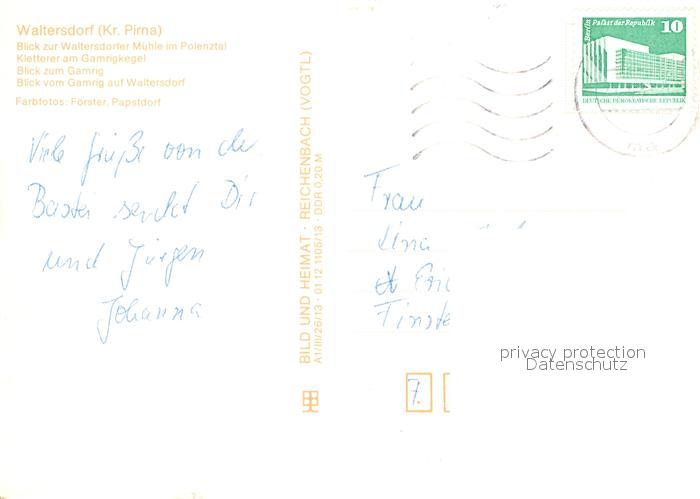 Waltersdorf (Kr. Pirna)
Blick zur Waltersdorfer Mühle im Polenztal
Kletterer am Gamrigkegel
Blick zum Gamrig
Blick vom Gamrig auf Waltersdorf
Farbfotos: Förster, Papstdorf
Viele Grüße von der
Bastei sendet Dir
und Jürgen
Johanna
BILD UND HEIMAT · REICHENBACH (VOGTL)
A1/III/26/13 · 01 12 1105/13 · DDR 0,20 M
Berlin Palast der Republik 10
DEUTSCHE DEMOKRATISCHE REPUBLIK
Frau
Lina
Finste
7.
privacy protection
Datenschutz